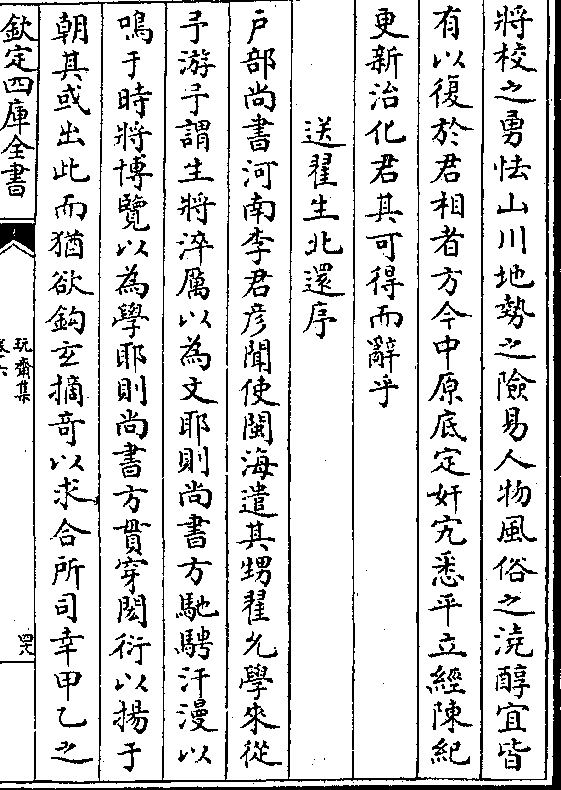 將校之勇怯山川地勢之險易人物風俗之澆醇宜皆
有以復於君相者方今中原底定奸宄悉平立經陳紀
更新治化君其可得而辭乎
送翟生北還序
戶部尚書河南李君彥聞使閩海遣其甥翟允學來從
予游予謂生將淬厲以為文耶則尚書方馳騁汗漫以
鳴于時將博覽以為學耶則尚書方貫穿閎衍以揚于
朝其或出此而猶欲鈎玄摘奇以求合所司幸甲乙之
欽定四庫全書
玩齋集
卷六
四六